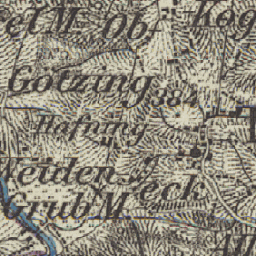 M. Ob.
Kog
Götzing
384
Hafning
Weiden
eck
grub M.